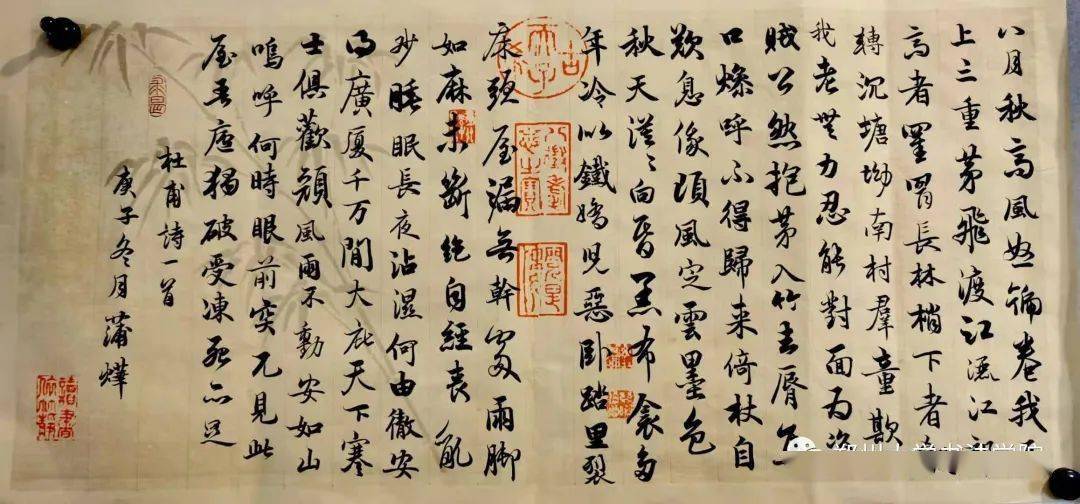 八月秋高風怒號卷我
上三重茅飛渡江灑江
高者罣罥長林梢下者
轉沉塘坳南村羣童欺
我老無力忍能對面為盜
賊公然抱茅入竹去脣焦
口燥呼不得歸来倚杖自
歎息俄頃風定雲墨色
秋天漠〻向昏黑布衾多
年冷似鐵嬌兒惡卧踏里裂
床頭屋漏無幹處雨脚
如麻未斷絕自經喪亂
少睡眠長夜沾濕何由徹安
得廣厦千万間大庇天下寒
士俱歡顏風雨不動安如山
嗚呼何時眼前突兀見此
屋吾廬獨破受凍死亦足
杜甫詩一首
庚子冬月蒲燁
郑州大学书法学院